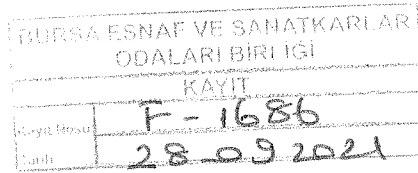 BURSA ESNAF VE SANATKARLAR
ODALARI BİRLİĞİ
KAYIT
Kayıt Nosu F-1686
Tarih 28-09-2021